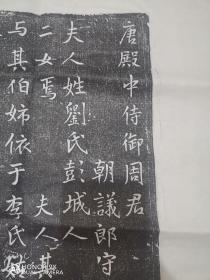 唐殿中侍御周君
朝議郎守
夫人姓劉氏彭城人
二女焉 夫人其
与其伯姊依于李氏